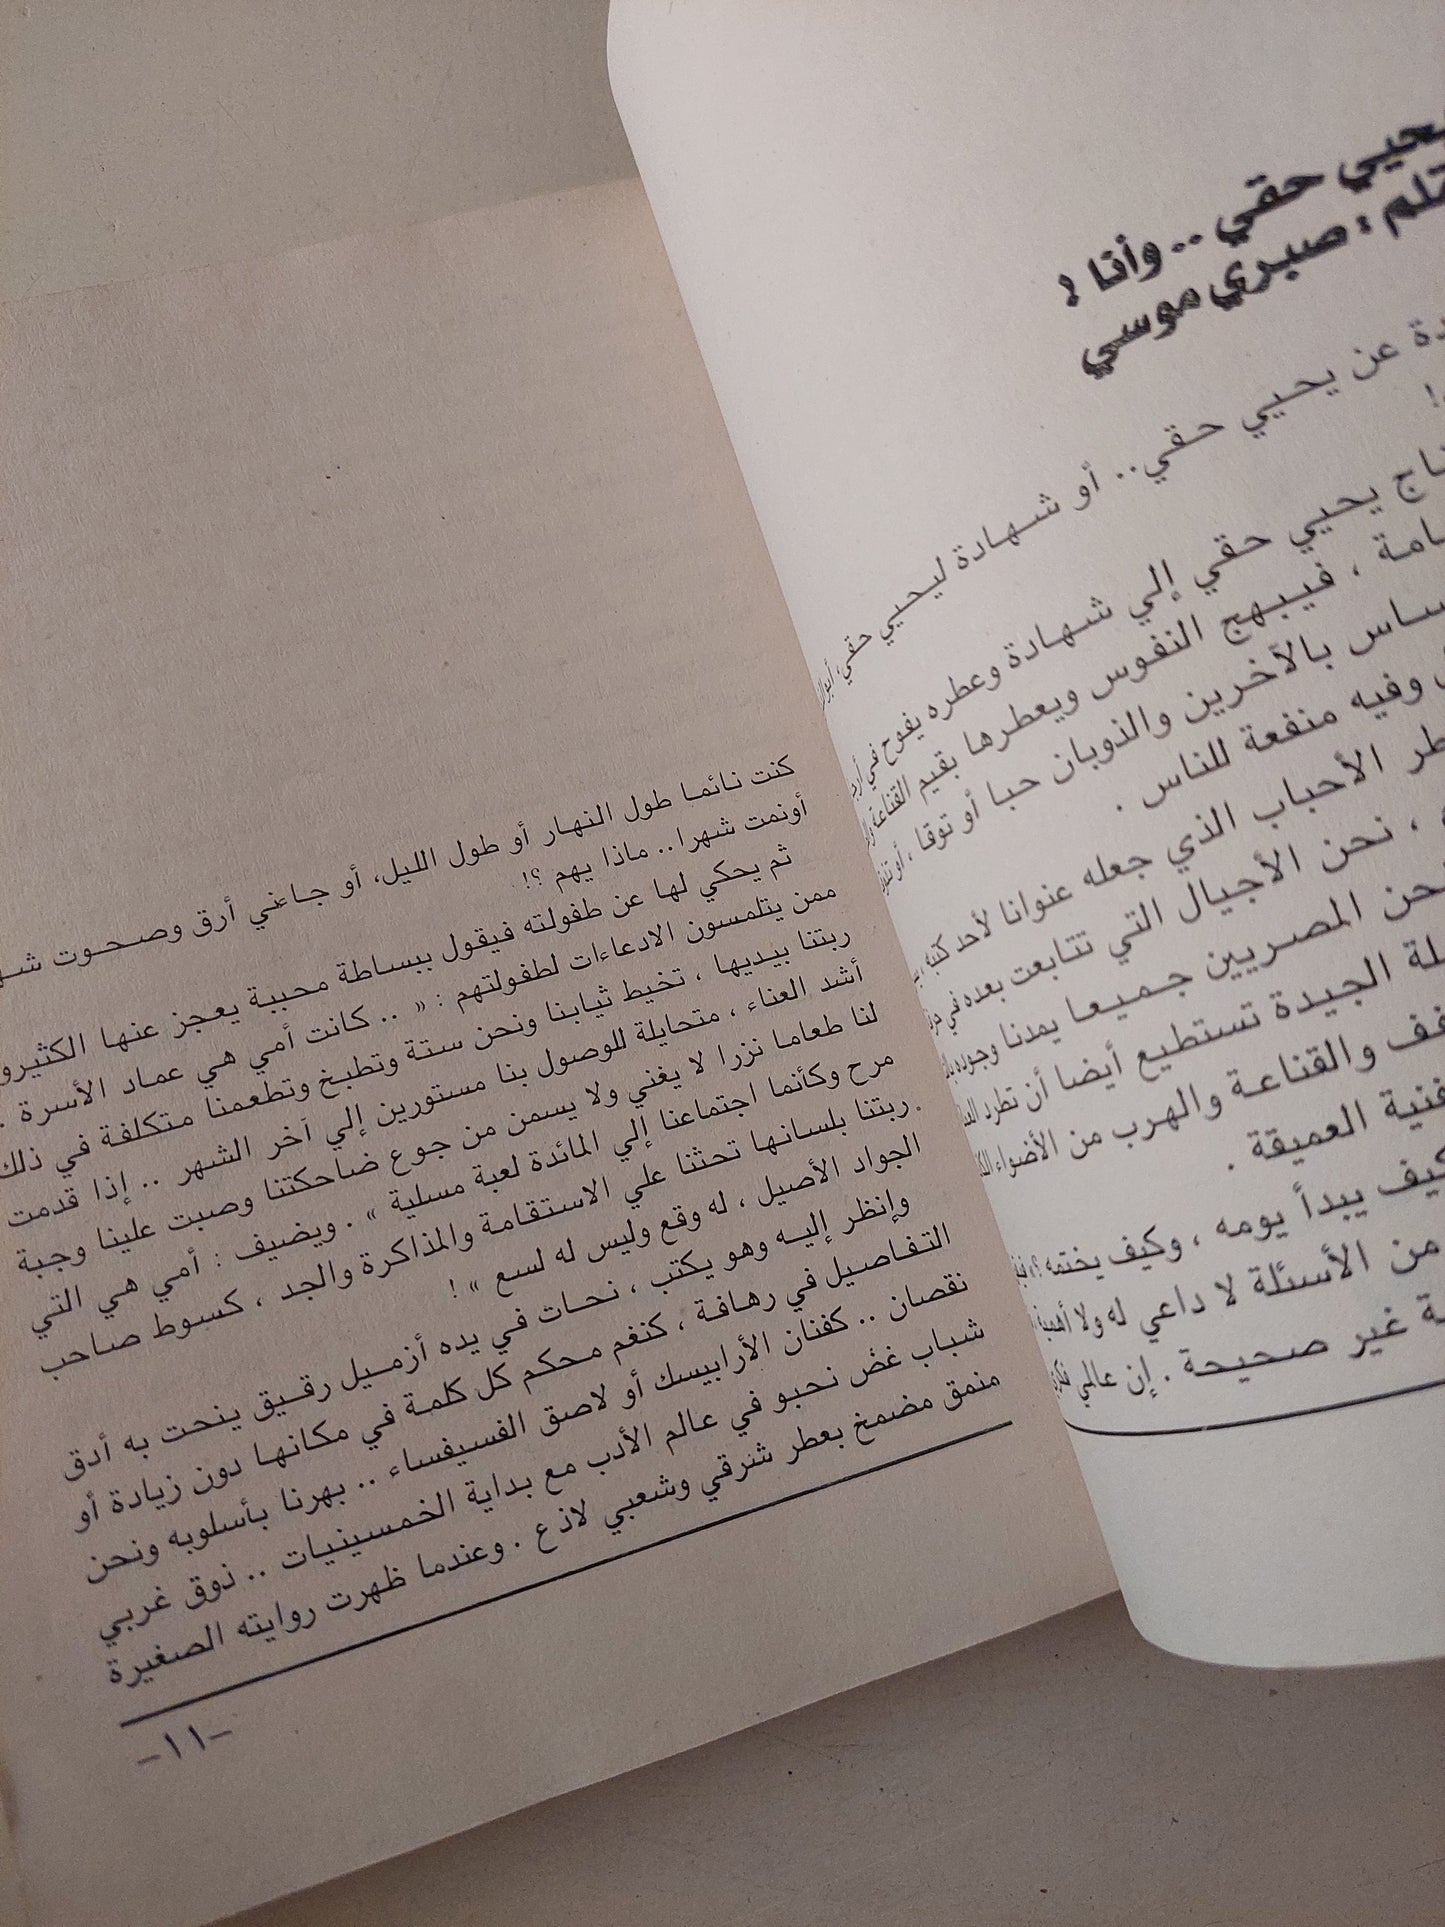 يحيي حقي .. وأنا !
بقلم : صبري موسي
عن يحيي حقي.. أو شهادة ليحيي حقي،
يحيي حقي إلي شهادة وعطره يفوح في
، فيبهج النفوس ويعطرها بقيم القناعة
بالآخرين والذوبان حبا أو توقا ، أو
وفيه منفعة للناس .
الأحباب الذي جعله عنوانا لأحد كتبه ،
، نحن الأجيال التي تتابعت بعده في
نحن المصريين جميعا يمدنا وجوده
الجيدة تستطيع أيضا أن تطرد
والقناعة والهرب من الأضواء
العميقة .
كيف يبدأ يومه ، وكيف يختمه ؟!
من الأسئلة لا داعي له ولا أهمية
غير صحيحة . إن عالمي
كنت نائما طول النهار أو طول الليل، أو جاءني أرق وصحوت
أونمت شهرا.. ماذا يهم ؟!
ثم يحكي لها عن طفولته فيقول ببساطة محببة يعجز عنها
ممن يتلمسون الادعاءات لطفولتهم : « .. كانت أمي هي عماد الأسرة .
ربتنا بيديها ، تخيط ثيابنا ونحن ستة وتطبخ وتطعمنا متكلفة في ذلك
أشد العناء ، متحايلة للوصول بنا مستورين إلي آخر الشهر .. إذا قدمت
لنا طعاما نزرا لا يغني ولا يسمن من جوع ضاحكتنا وصبت علينا وجبة
مرح وكأنما اجتماعنا إلي المائدة لعبة مسلية » . ويضيف : أمي هي التي
ربتنا بلسانها تحثنا علي الاستقامة والمذاكرة والجد ، كسوط صاحب
الجواد الأصيل ، له وقع وليس له لسع » !
وانظر إليه وهو يكتب ، نحات في يده أزميل رقيق ينحت به أدق
التفاصيل في رهافة ، كنغم محكم كل كلمة في مكانها دون زيادة أو
نقصان .. كفنان الأرابيسك أو لاصق الفسيفساء .. بهرنا بأسلوبه ونحن
شباب غض نحبو في عالم الأدب مع بداية الخمسينيات .. ذوق غربي
منمق مضمخ بعطر شرقي وشعبي لاذع . وعندما ظهرت روايته الصغيرة
-١١-